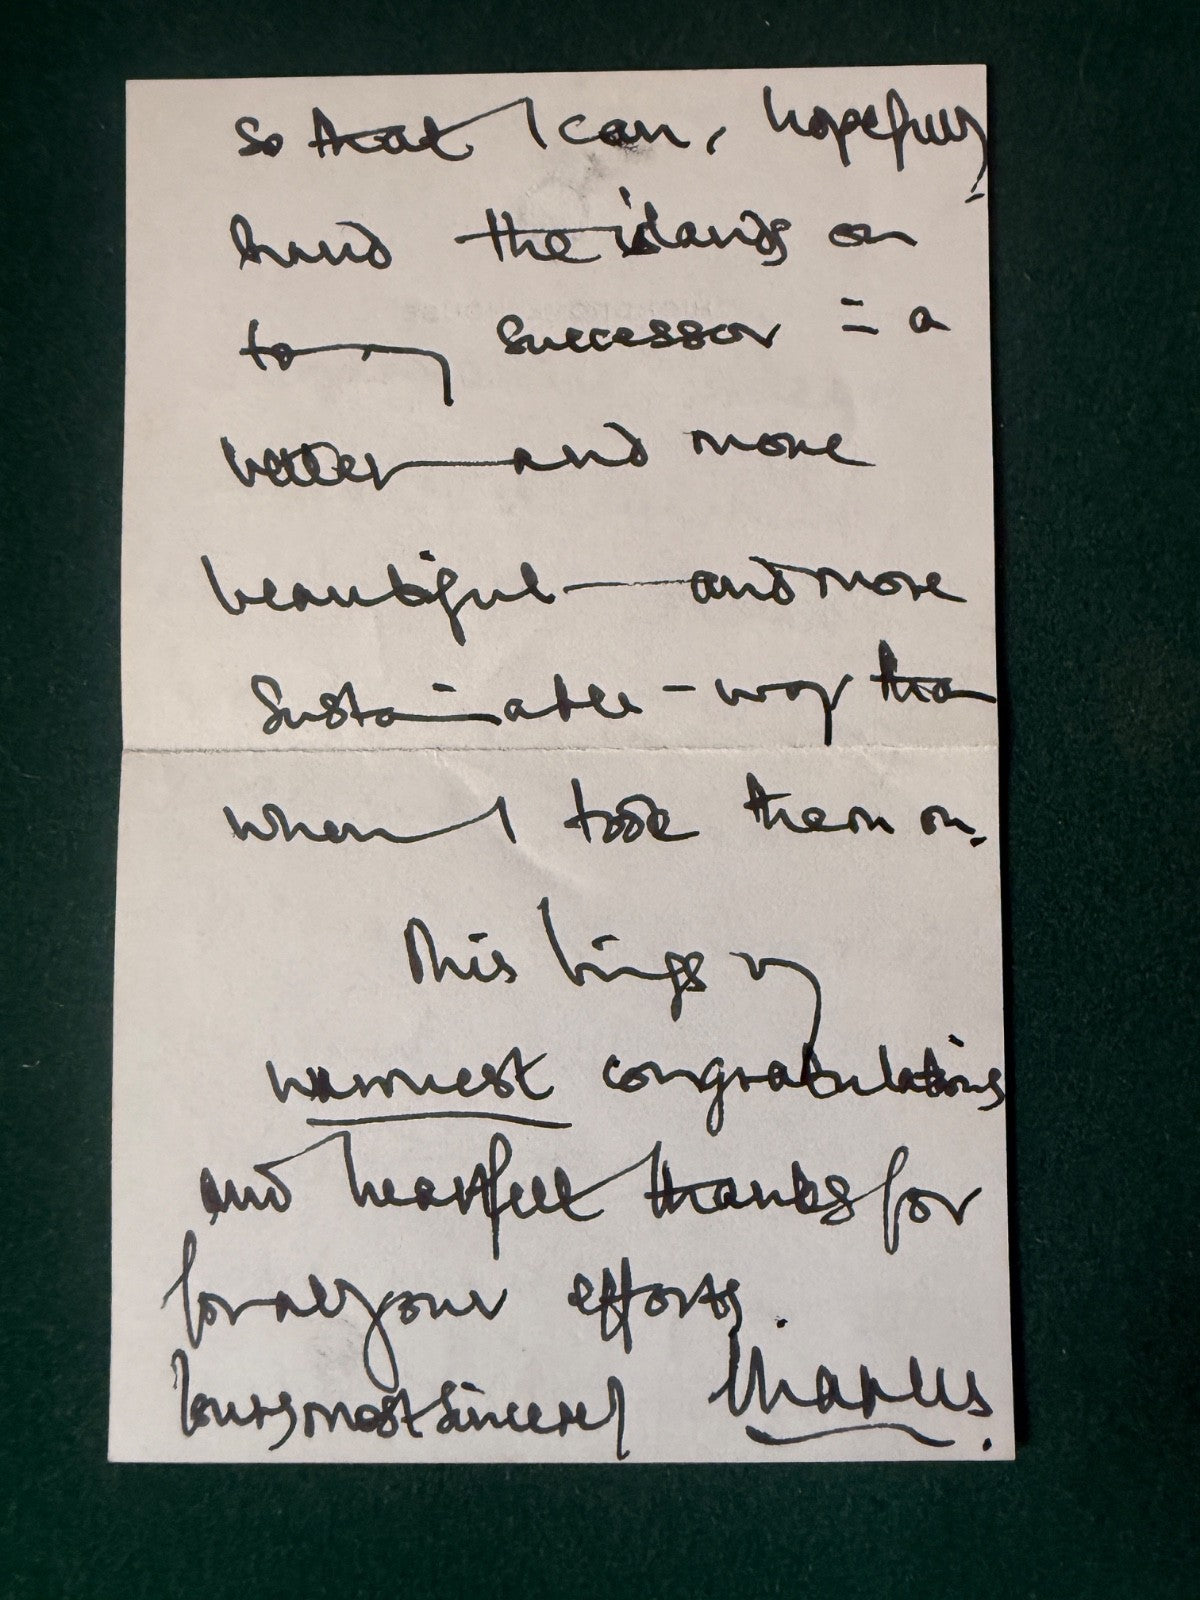 so that I can, hopefully
hand the islands on
to my successor = a
better and more
beautiful and more
sustainable - way than
when I took them on.
This brings my
warmest congratulations
and heartfelt thanks for
for all your efforts.
Yours most sincerely Charles.